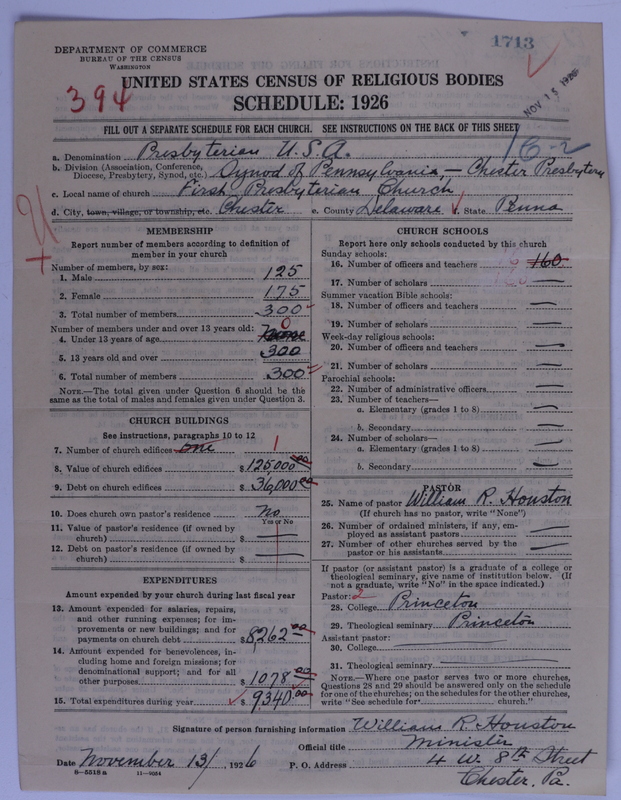 1713
DEPARTMENT OF COMMERCE
BUREAU OF THE CENSUS
WASHINGTON
394
UNITED STATES CENSUS OF RELIGIOUS BODIES
SCHEDULE: 1926
NOV 15 1926
FILL OUT A SEPARATE SCHEDULE FOR EACH CHURCH. SEE INSTRUCTIONS ON THE BACK OF THIS SHEET
16-2
a. Denomination Presbyterian U.S.A.
b. Division (Association, Conference, Diocese, Presbytery, Synod, etc.) Synod of Pennsylvania, – Chester Presbytery
c. Local name of church First Presbyterian Church
d. City, town, village, or township, etc. Chester e. County Delaware f. State Penna
MEMBERSHIP
Report number of members according to definition of
member in your church
Number of members, by sex:
1. Male 125
2. Female 175
3. Total number of members 300
Number of members under and over 13 years old:
4. Under 13 years of age None 0
5. 13 years old and over 300
6. Total number of members 300
NOTE.—The total given under Question 6 should be the
same as the total of males and females given under Question 3.
CHURCH BUILDINGS
See instructions, paragraphs 10 to 12
7. Number of church edifices one 1
8. Value of church edifices $125,000 00
9. Debt on church edifices $36,000 00
10. Does church own pastor's residence No
Yes or No
11. Value of pastor's residence (if owned by
church) $ —
12. Debt on pastor's residence (if owned by
church) $ —
EXPENDITURES
Amount expended by your church during last fiscal year
13. Amount expended for salaries, repairs,
and other running expenses; for im-
provements or new buildings; and for
payments on church debt $8,262 00
14. Amount expended for benevolences, in-
cluding home and foreign missions; for
denominational support; and for all
other purposes 1078 00
15. Total expenditures during year $9340 00
CHURCH SCHOOLS
Report here only schools conducted by this church
Sunday schools:
16. Number of officers and teachers 16 160.
17. Number of scholars 160 —
Summer vacation Bible schools:
18. Number of officers and teachers —
19. Number of scholars —
Week-day religious schools:
20. Number of officers and teachers —
21. Number of scholars —
Parochial schools:
22. Number of administrative officers —
23. Number of teachers—
a. Elementary (grades 1 to 8) —
b. Secondary —
24. Number of scholars—
a. Elementary (grades 1 to 8) —
b. Secondary —
PASTOR
25. Name of pastor William R. Houston
(If church has no pastor, write "None")
26. Number of ordained ministers, if any, em-
ployed as assistant pastors —
27. Number of other churches served by the
pastor or his assistants —
If pastor (or assistant pastor) is a graduate of a college or
theological seminary, give name of institution below. (If
not a graduate, write "No" in the space indicated.)
Pastor: 2
28. College Princeton
29. Theological seminary Princeton
Assistant pastor:
30. College —
31. Theological seminary —
NOTE.—Where one pastor serves two or more churches,
Questions 28 and 29 should be answered only on the schedule
for one of the churches; on the schedules for the other churches,
write "See schedule for church."
Signature of person furnishing information William R. Houston
Official title Minister
Date November 13/, 1926 P. O. Address 4 W. 8th Street
Chester, Pa.
8—5518 a 11—9034